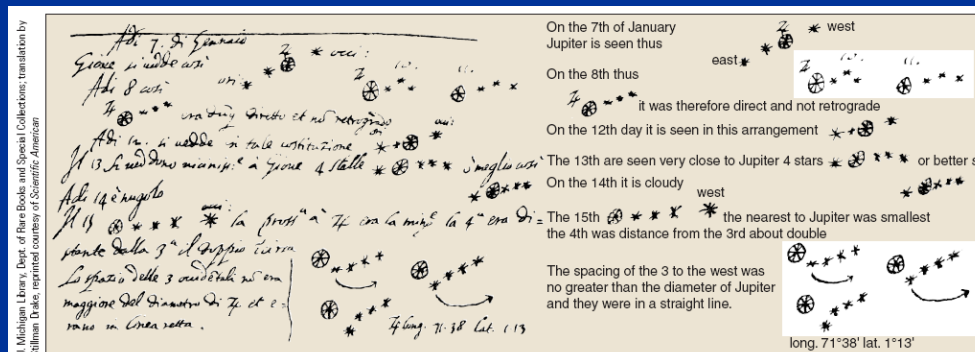 I. Michigan Library, Dept. of Rare Books and Special Collections; translation by
Stillman Drake, reprinted courtesy of Scientific American
Adi 7. di Gennaio
Giove si vedde così
ori:
occi:
Adi 8 così
era diretto et no retrogrado
Adi 12. si vedde in tale costituzione
Il 13 si veddono à Giove 4 stelle ò meglio così
Adi 14 è nugolo
Il 15 la pross.ª à era la min.ª la 4.ª era di=
stante dalla 3.ª il doppio
Lo spazio delle 3 occidentali nò era
maggiore del diametro di et e=
rano in linea retta.
long. 71.38 lat. 1.13
On the 7th of January
Jupiter is seen thus
west
east
On the 8th thus
10. 11.
it was therefore direct and not retrograde
On the 12th day it is seen in this arrangement
The 13th are seen very close to Jupiter 4 stars or better s
On the 14th it is cloudy
west
The 15th the nearest to Jupiter was smallest
the 4th was distance from the 3rd about double
The spacing of the 3 to the west was
no greater than the diameter of Jupiter
and they were in a straight line.
long. 71°38' lat. 1°13'